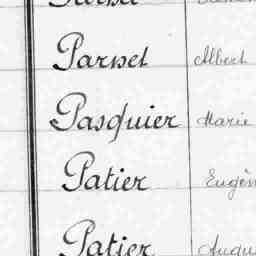 Parnet Albert
Pasquier Marie
Patier Eugèn
Patier Augu